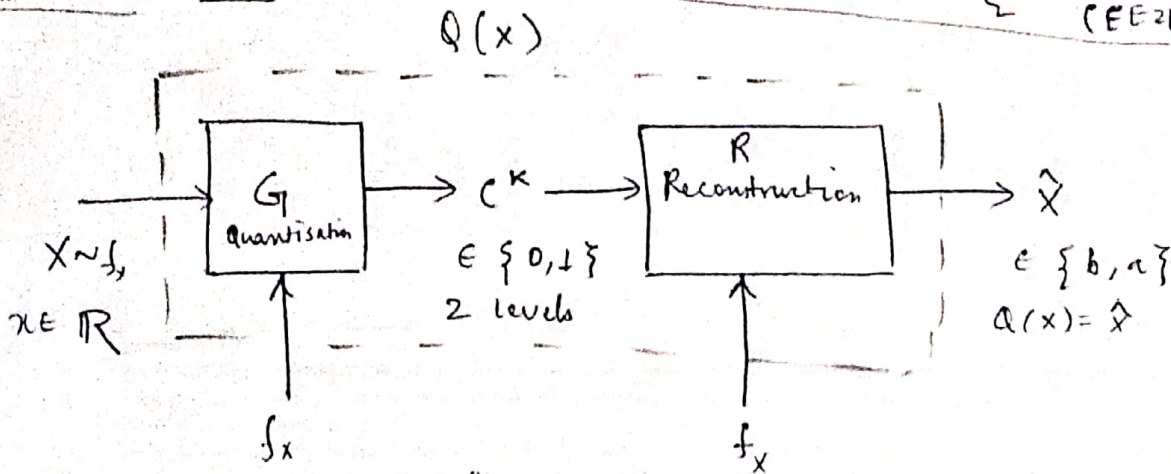 (EE2
Q(x)
G
Quantisation
C^K
R
Reconstruction
X̂
X~f,
x∈ ℝ
∈ {0,1}
2 levels
∈ {b,a}
Q(x)= x̂
f_x
f_x